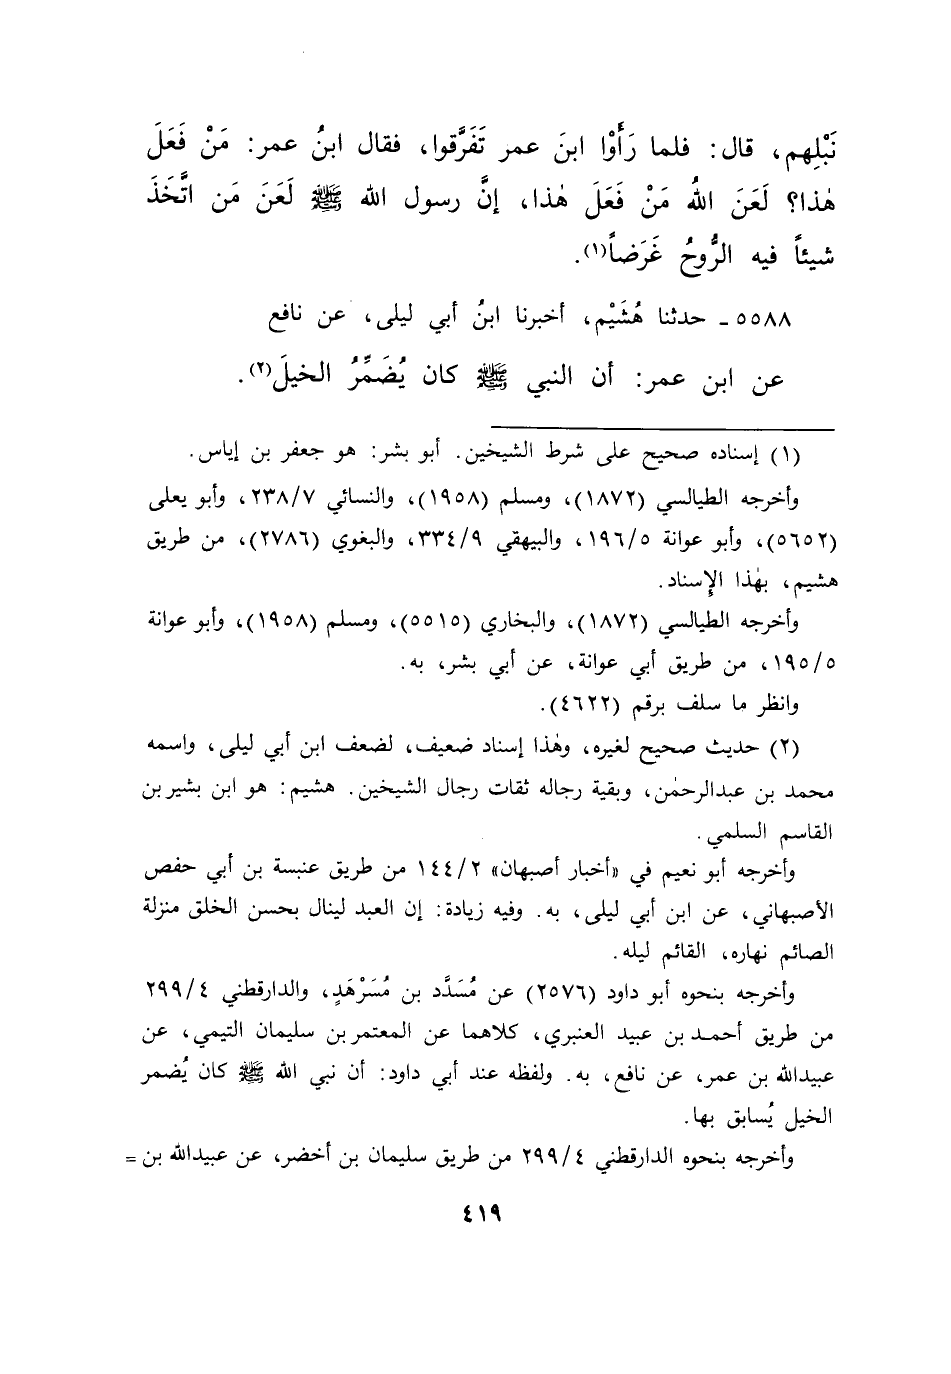 نَبْلِهم، قال: فلما رَأَوْا ابنَ عمر تَفَرَّقوا، فقال ابنُ عمر: مَنْ فَعَلَ
هٰذا؟ لَعَنَ اللهُ مَنْ فَعَلَ هٰذا، إنَّ رسول الله ﷺ لَعَنَ مَن اتَّخَذَ
شيئاً فيه الرُّوحُ غَرَضاً(١).
٥٥٨٨ ـ حدثنا هُشَيْم، أخبرنا ابنُ أبي ليلى، عن نافع
عن ابن عمر: أن النبي ﷺ كان يُضَمِّرُ الخيلَ(٢).
(١) إسناده صحيح على شرط الشيخين. أبو بشر: هو جعفر بن إياس.
وأخرجه الطيالسي (١٨٧٢)، ومسلم (١٩٥٨)، والنسائي ٢٣٨/٧، وأبو يعلى
(٥٦٥٢)، وأبو عوانة ١٩٦/٥، والبيهقي ٣٣٤/٩، والبغوي (٢٧٨٦)، من طريق
هشيم، بهٰذا الإسناد.
وأخرجه الطيالسي (١٨٧٢)، والبخاري (٥٥١٥)، ومسلم (١٩٥٨)، وأبو عوانة
١٩٥/٥، من طريق أبي عوانة، عن أبي بشر، به.
وانظر ما سلف برقم (٤٦٢٢).
(٢) حديث صحيح لغيره، وهٰذا إسناد ضعيف، لضعف ابن أبي ليلى، واسمه
محمد بن عبدالرحمٰن، وبقية رجاله ثقات رجال الشيخين. هشيم: هو ابن بشير بن
القاسم السلمي.
وأخرجه أبو نعيم في «أخبار أصبهان» ١٤٤/٢ من طريق عنبسة بن أبي حفص
الأصبهاني، عن ابن أبي ليلى، به. وفيه زيادة: إن العبد لينال بحسن الخلق منزلة
الصائم نهاره، القائم ليله.
وأخرجه بنحوه أبو داود (٢٥٧٦) عن مُسَدَّد بن مُسَرْهَدٍ، والدارقطني ٢٩٩/٤
من طريق أحمد بن عبيد العنبري، كلاهما عن المعتمر بن سليمان التيمي، عن
عبيدالله بن عمر، عن نافع، به. ولفظه عند أبي داود: أن نبي الله ﷺ كان يُضمر
الخيل يُسابق بها.
وأخرجه بنحوه الدارقطني ٢٩٩/٤ من طريق سليمان بن أخضر، عن عبيدالله بن =
٤١٩